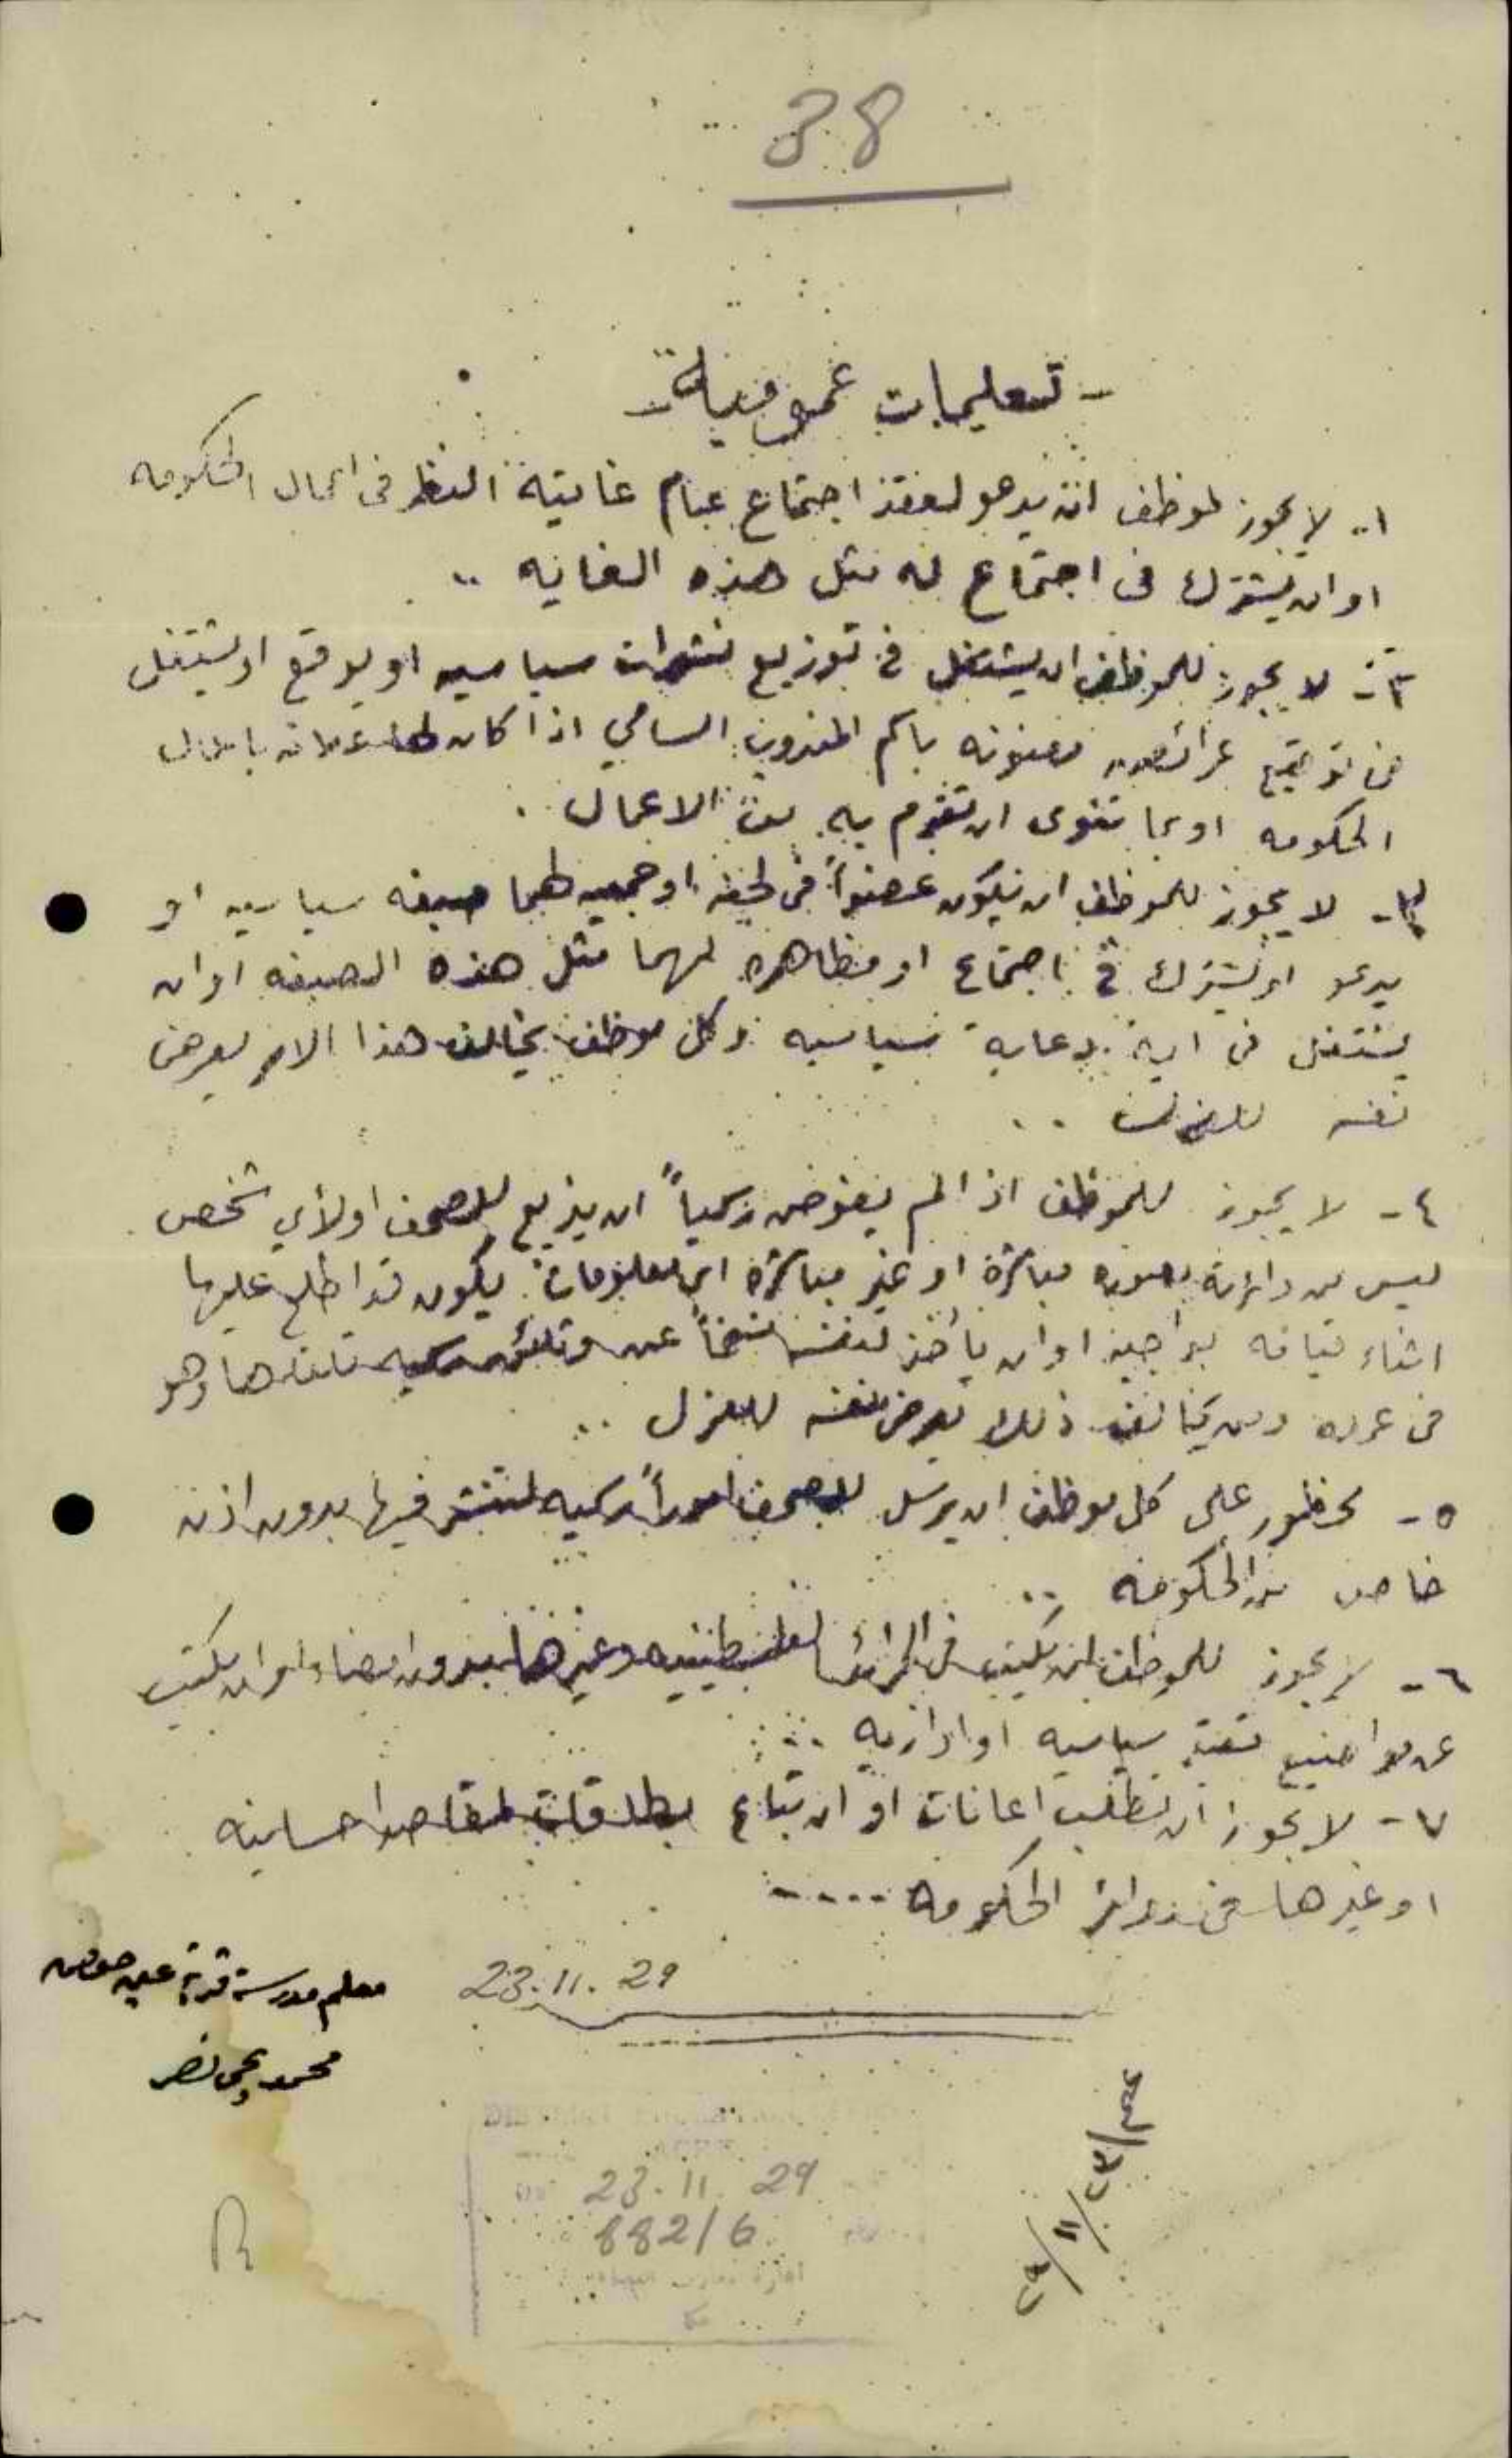 38
- تعليمات عمومية -
١- لا يجوز لموظف ان يدعو لعقد اجتماع عام غايته النظر في اعمال الحكومه
او ان يشترك في اجتماع له مثل هذه الغايه ..
٢- لا يجوز للموظف ان يشتغل في توزيع نشرات سياسيه او يوقع او يشتغل
في توقيع عرائض معنونه باسم المندوب السامي اذا كان لها علاقه باعمال
الحكومه او بما تنوى ان تقوم به من الاعمال .
٣- لا يجوز للموظف ان يكون عضواً في لجنه او جمعيه لهما صبغه سياسيه او
يدعو او يشترك في اجتماع او مظاهره لهما مثل هذه الصبغه او ان
يشتغل في اية دعاية سياسيه وكل موظف يخالف هذا الامر يعرض
نفسه للعزل ..
٤- لا يجوز للموظف اذا لم يفوض رسمياً ان يذيع للصحف او لأي شخص
ليس من دائرته بصوره مباشرة او غير مباشرة اي معلومات يكون قد اطلع عليها
اثناء قيامه بواجبه او ان يأخذ لنفسه نسخاً عن وثائق رسميه تلقاها وهو
في عمله ومن يخالف ذلك يعرض نفسه للعزل ..
٥- محظور على كل موظف ان يرسل للصحف اموراً رسميه لتنشر فيها بدون اذن
خاص من الحكومه ..
٦- لا يجوز للموظف ان يكتب في الجرائد الفلسطينيه وغيرها بدون امضاء او ان يكتب
عن مواضيع سياسيه او اداريه ..
٧- لا يجوز ان تطلب اعانات او ان تباع بطاقات لمقاصد احسانيه
او غيرها في دوائر الحكومه ....
23.11.29
معلم مدرسة قرية عين حوض
محمد يحيى نصر
23.11.29
882/6
٢٩/١١/٢٣